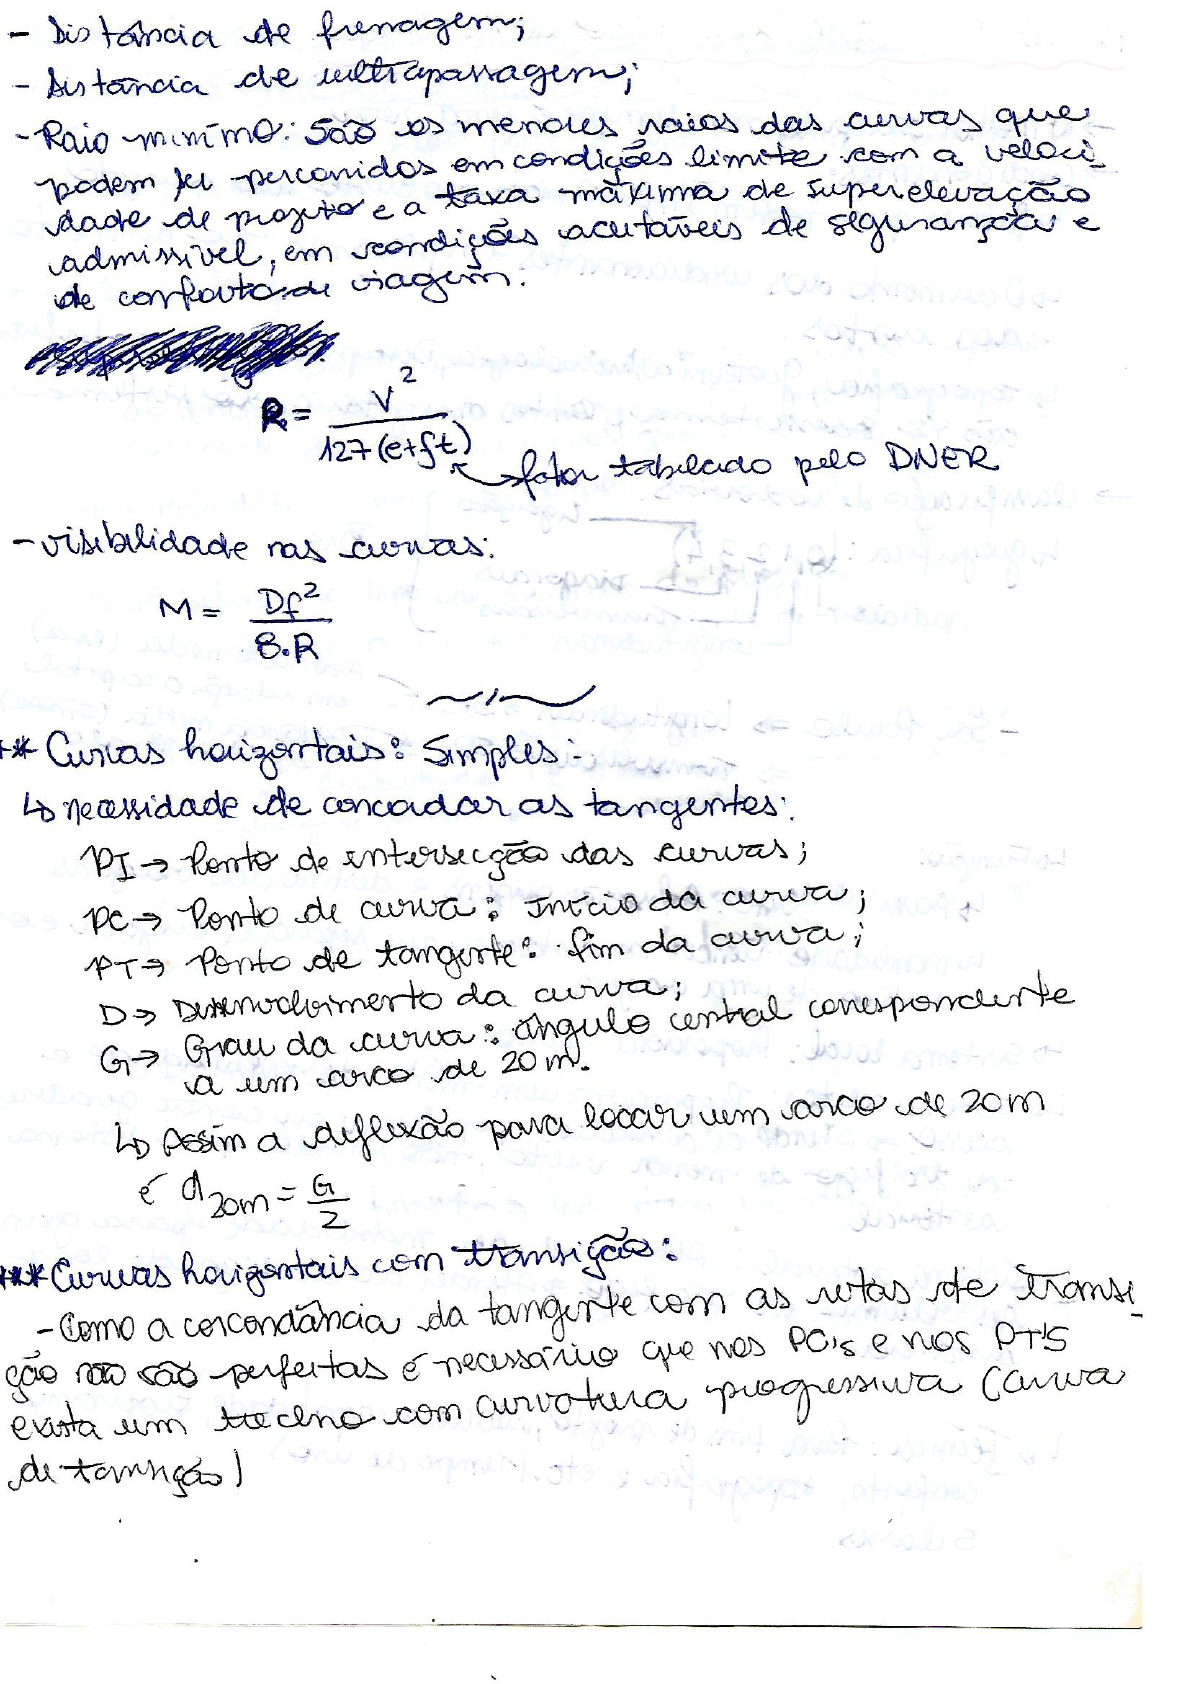 - Distância de frenagem;
- Distância de ultrapassagem;
- Raio mínimo: São os menores raios das curvas que
podem ser percorridos em condições limite com a veloci_
dade de projeto e a taxa máxima de superelevação
admissível, em condições aceitáveis de segurança e
de conforto de viagem.
R = V² / 127(e+ft)
→ fator tabelado pelo DNER
- visibilidade nas curvas:
M = Df² / 8.R
** Curvas horizontais: Simples:
↳ necessidade de concordar as tangentes:
PI → Ponto de intersecção das curvas;
PC → Ponto de curva: Início da curva;
PT → Ponto de tangente: fim da curva;
D → Desenvolvimento da curva;
G → Grau da curva: ângulo central correspondente
a um arco de 20m.
↳ Assim a deflexão para locar um arco de 20m
é d20m = G/2
*** Curvas horizontais com transição:
- Como a concordância da tangente com as retas de transi_
ção não são perfeitas é necessário que nos PC's e nos PT'S
exista um trecho com curvatura progressiva (curva
de transição)